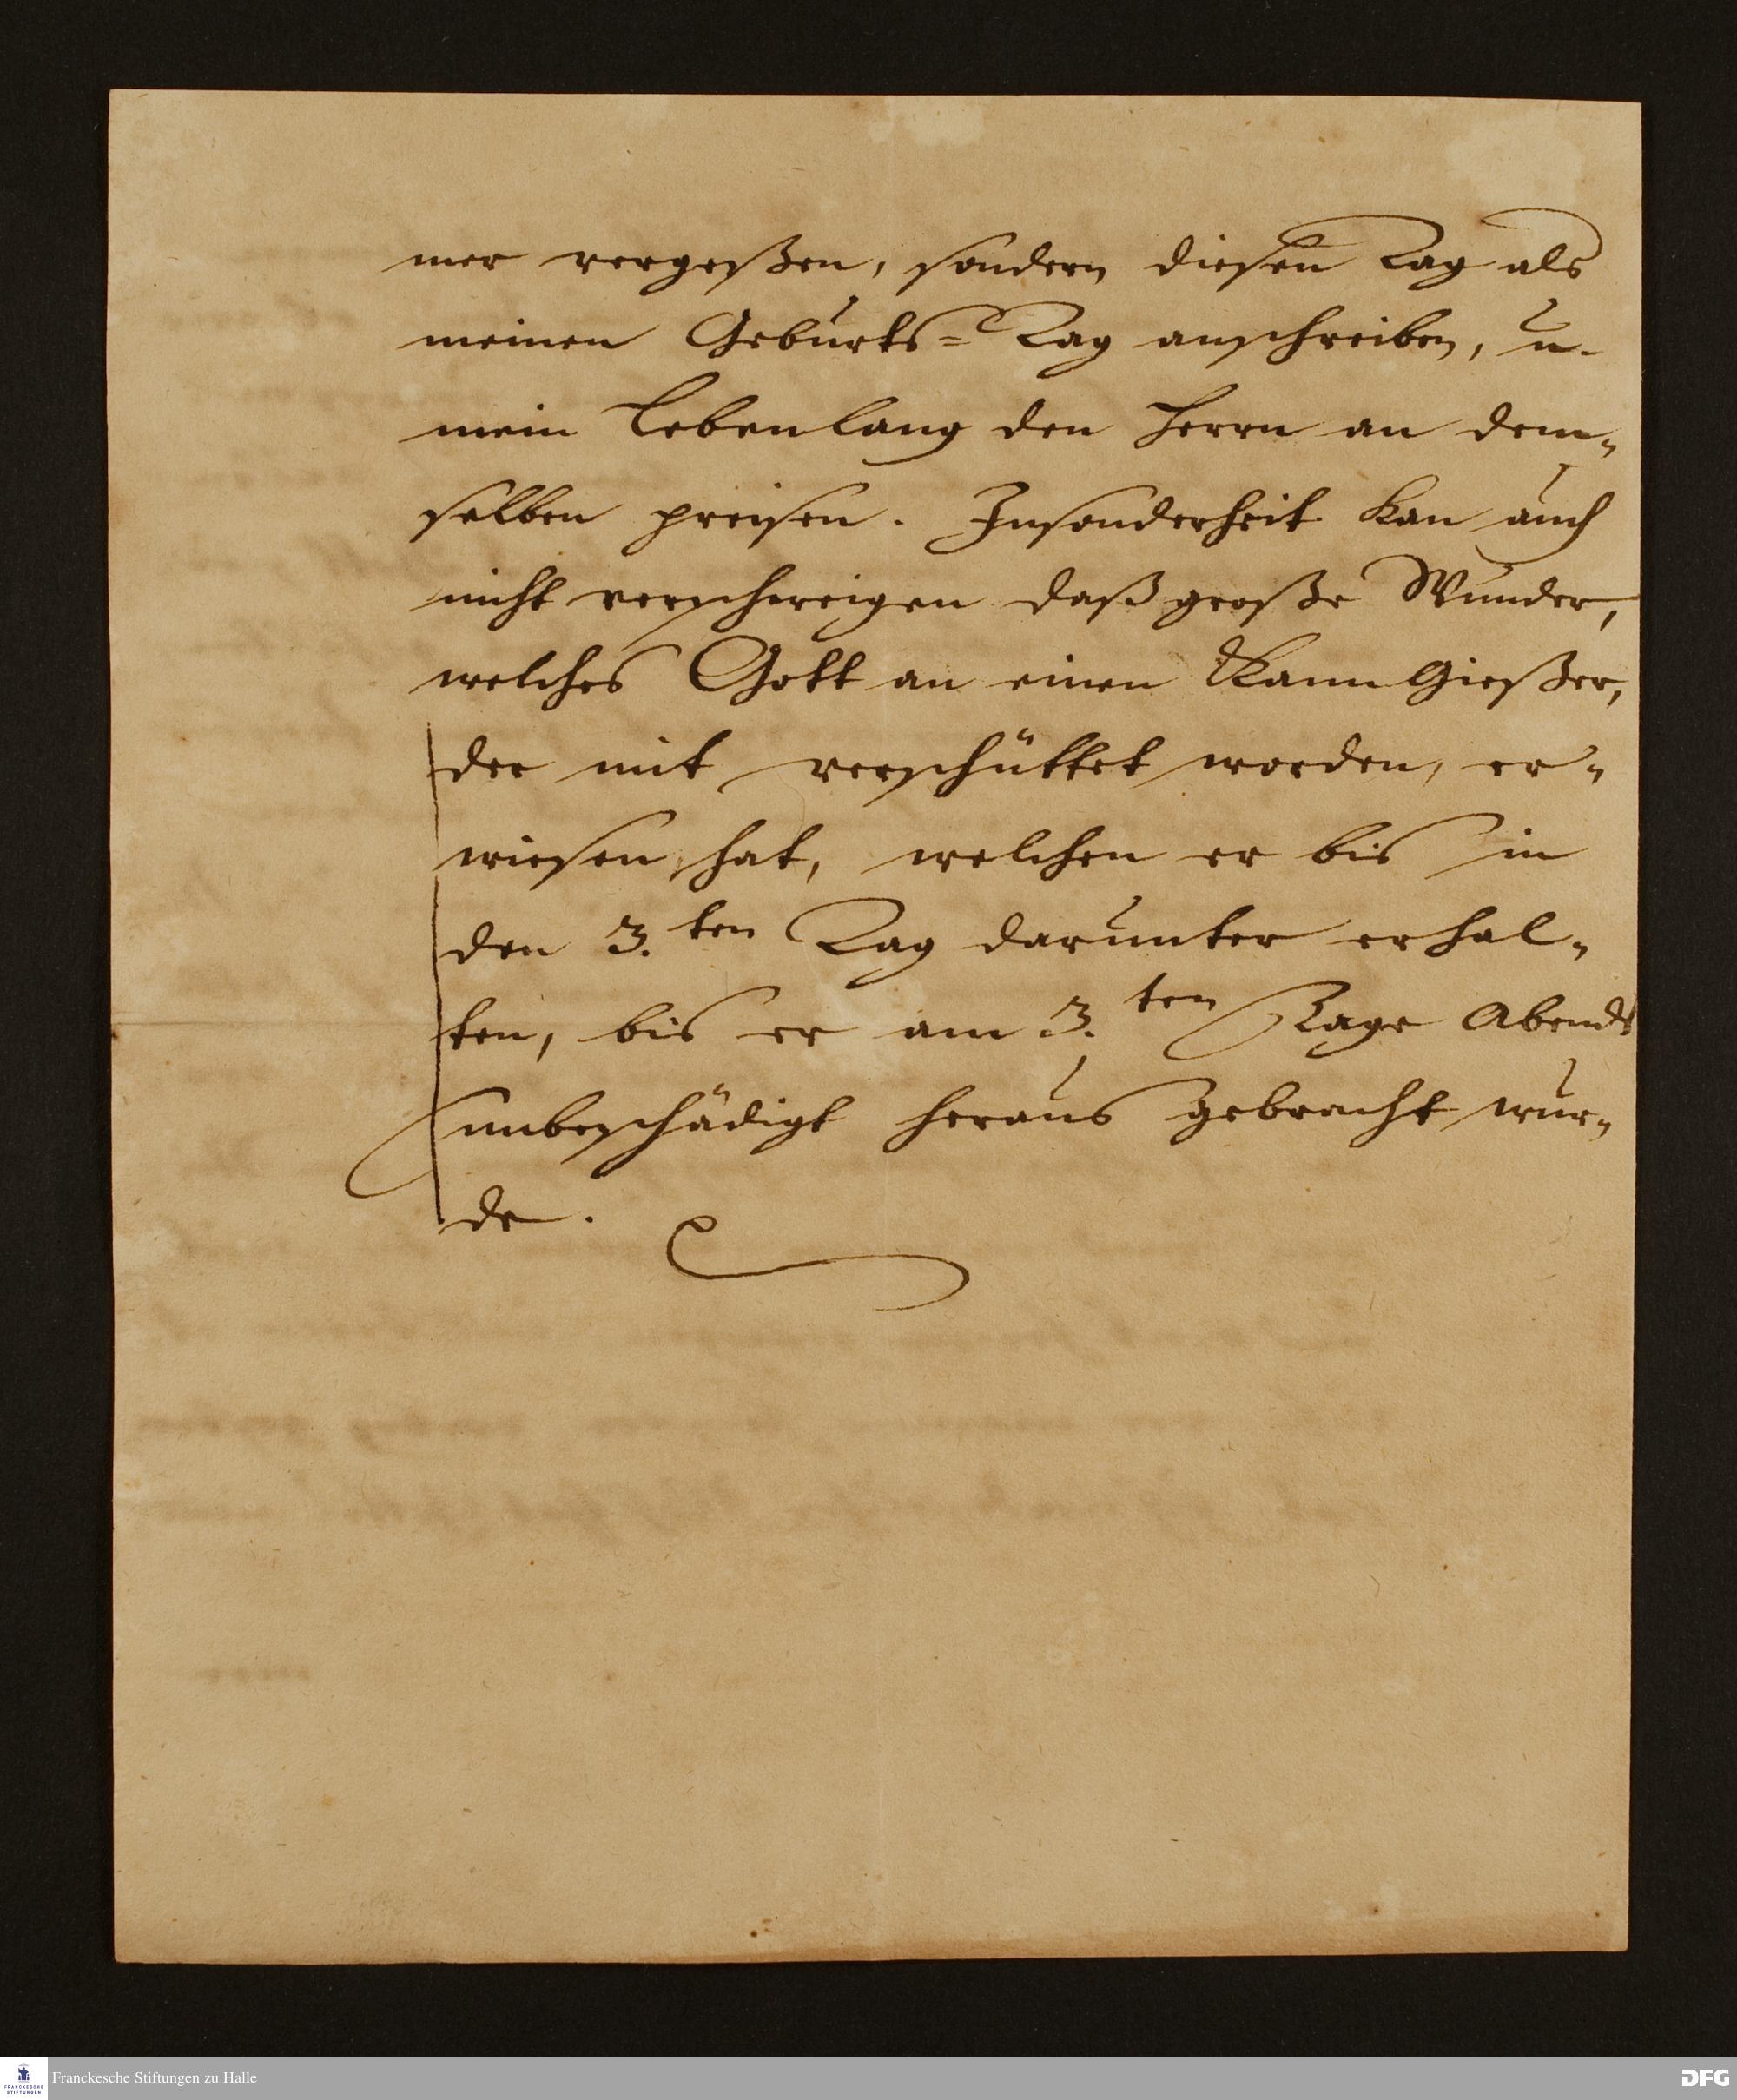 mer vergeßen, sondern diesen Tag als
meinen Geburts=Tag anschreiben, u.
mein Lebenlang den Herrn an dem-
selben preisen. Insonderheit kan auch
nicht verschweigen daß große Wunder,
welches Gott an einen KannGießer,
der mit verschüttet worden, er-
wiesen hat, welchen er bis in
den 3.ten Tag darunter erhal-
ten, bis er am 3.ten Tage Abends
unbeschädigt heraus gebracht wur-
de.
FRANCKESCHE STIFTUNGEN
Franckesche Stiftungen zu Halle
DFG